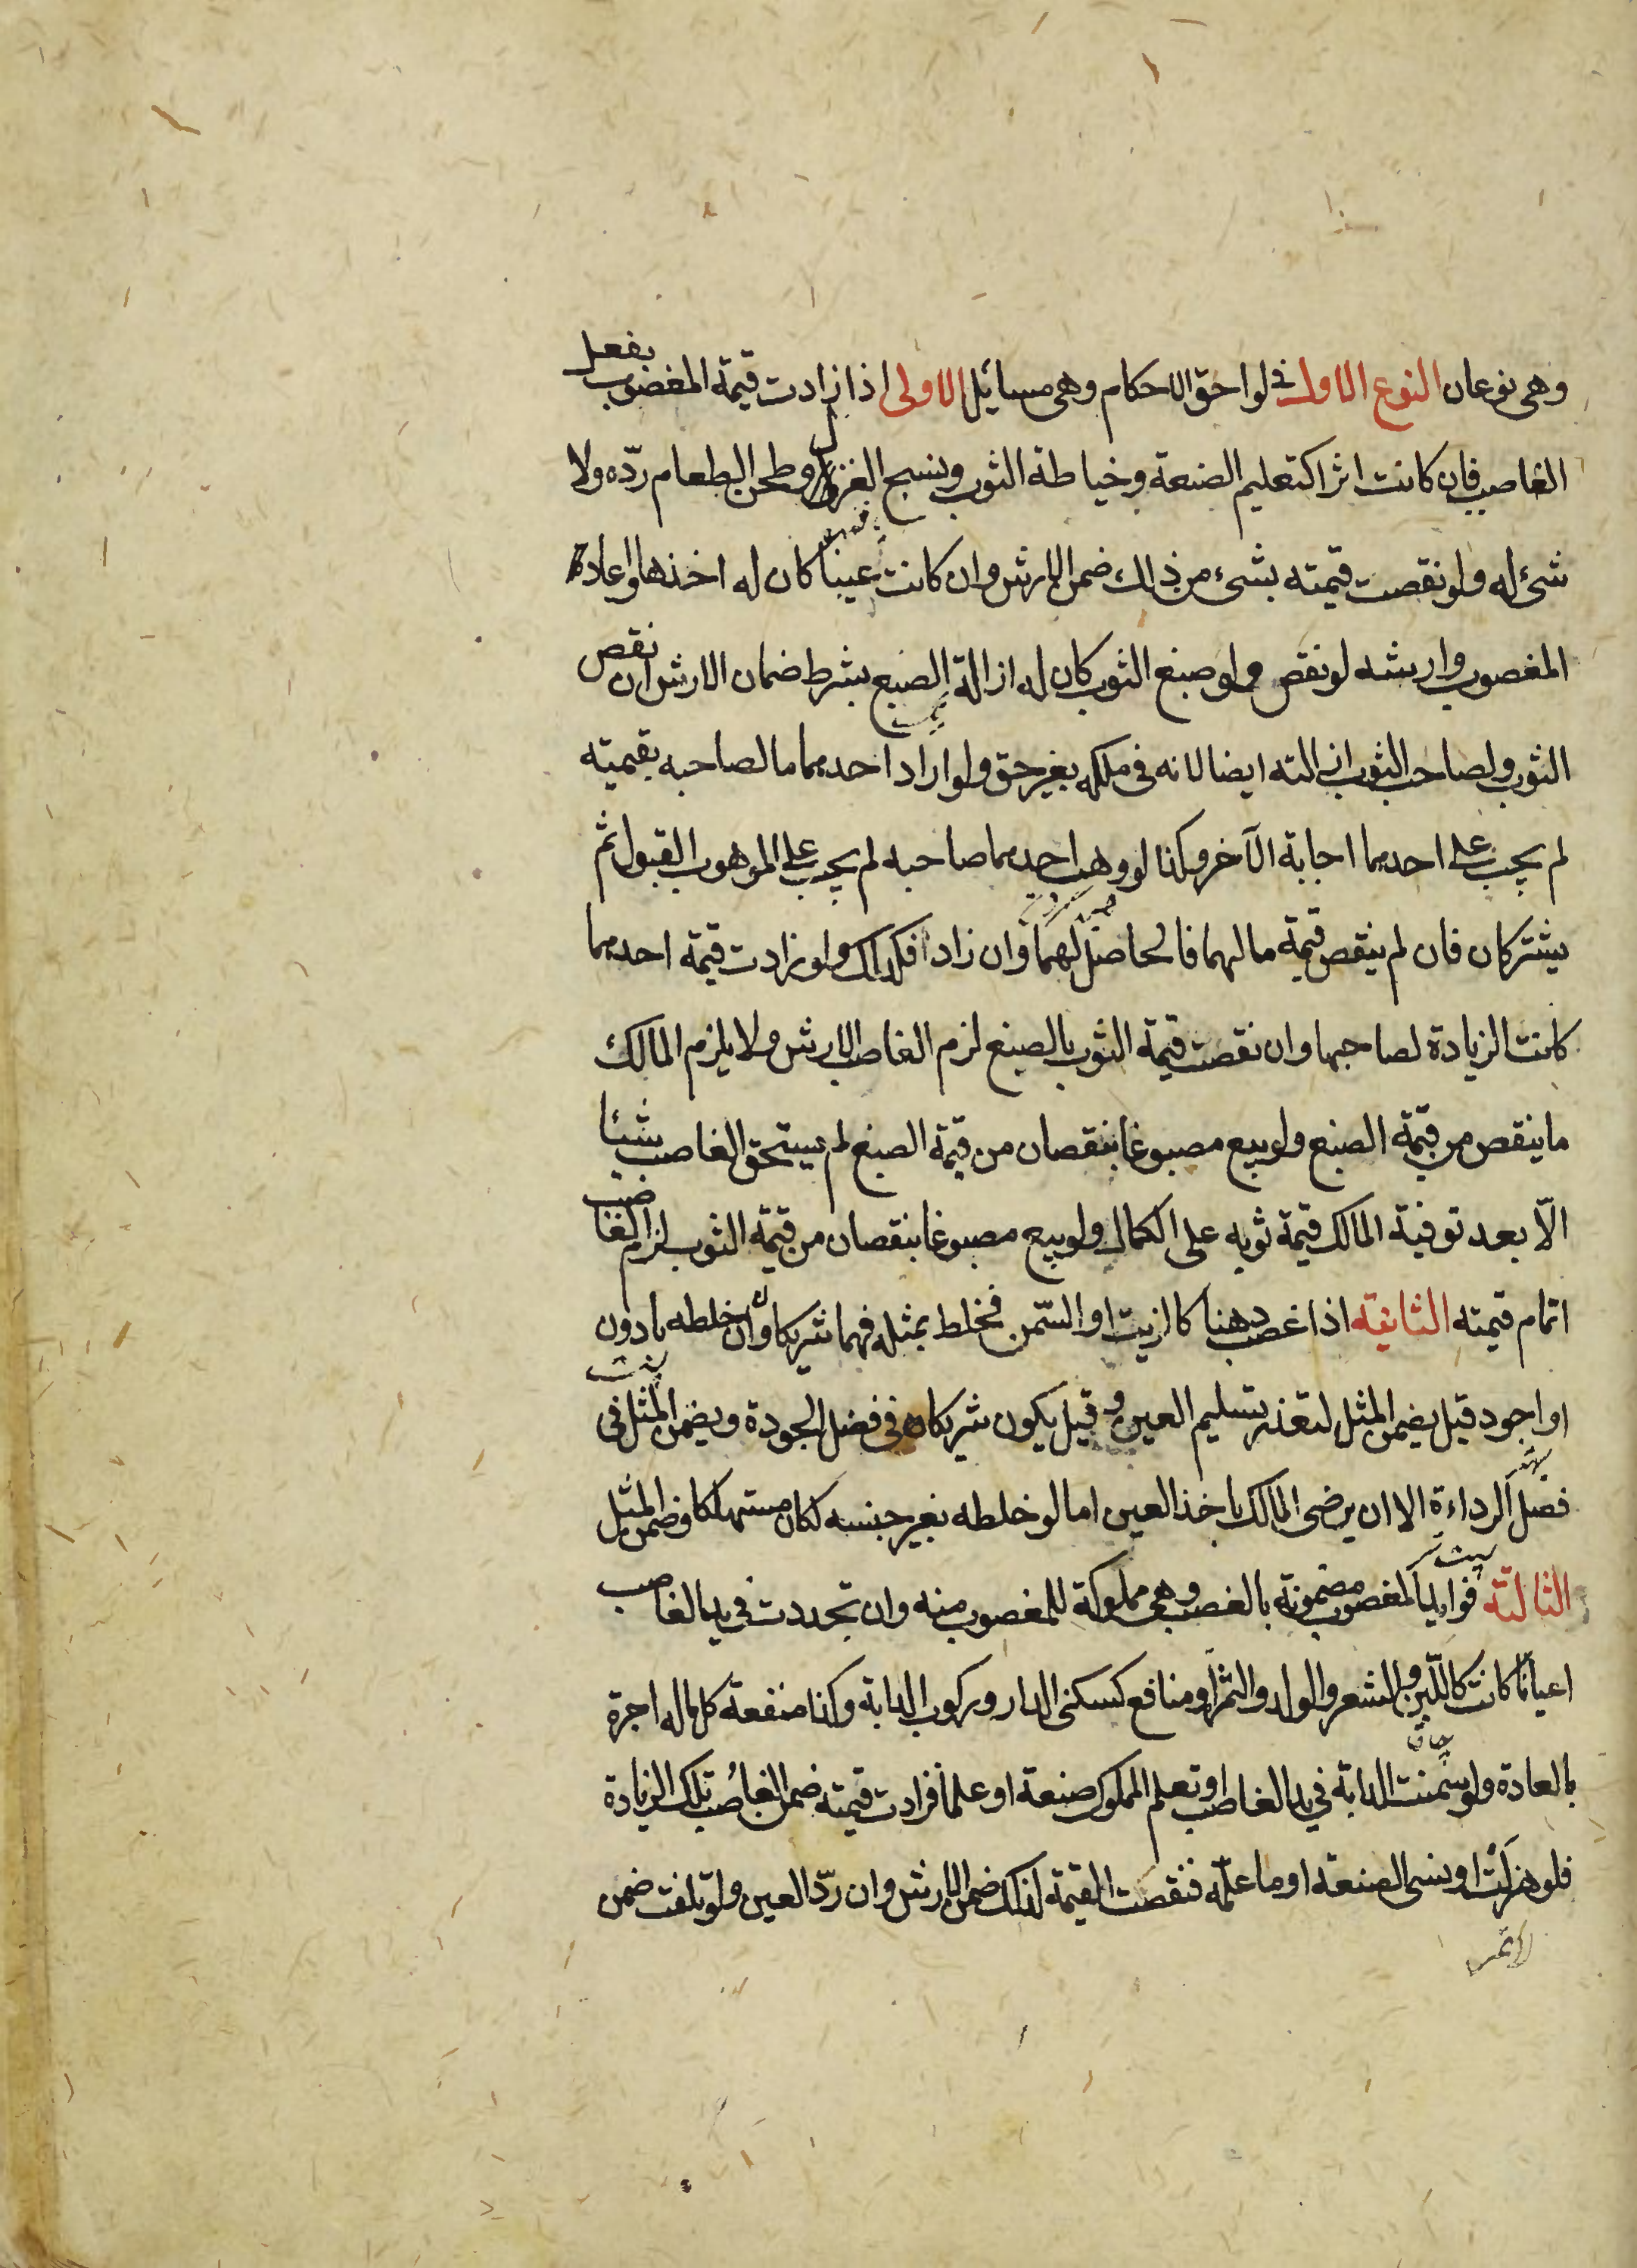 وهى نوعان النوع الاول فى لواحق الاحكام وهى مسائيل الاولى اذا زادت قيمة المغضوب بفعل
الغاصب فان كانت اثرا كتعليم الصنعة وخياطة الثوب ونسج الغزل وطحن الطعام ردّه ولا
شىء له ولو نقصت قيمته بشىء من ذلك ضمن الارش وان كانت عينا كان له اخذها واعادة
المغصوب وارشه لو نقص ولو صبغ الثوب كان له ازالة الصبغ بشرط ضمان الارش ان نقص
الثوب ولصاحب الثوب ازالته ايضا لانه فى ملكه بغير حق ولو اراد احدهما ما لصاحبه بقيمته
لم يجب على احدهما اجابة الآخر وكذا لو وهب احدهما صاحبه لم يجب على الموهوب القبول ثم
يشتركان فان لم ينقص قيمة مالهما فالحاصل لهما وان زاد فكذلك ولو زادت قيمة احدهما
كانت الزيادة لصاحبها وان نقصت قيمة الثوب بالصبغ لزم الغاصب الارش ولا يلزم المالك
ما ينقص من قيمة الصبغ ولو بيع مصبوغا بنقصان من قيمة الصبغ لم يستحق الغاصب شيئا
الّا بعد توفية المالك قيمة ثوبه على الكمال ولو بيع مصبوغا بنقصان من قيمة الثوب لزم الغاصب
اتمام قيمته الثانية اذا غصب دهنا كالزيت او السّمن فخلط بمثله فهما شريكان وان خلطه بادون
او اجود قيل يضمن المثل لتعذر تسليم العين وقيل يكون شريكا فى فضل الجودة ويضمن المثل فى
فضل الرداءة الا ان يرضى المالك باخذ العين اما لو خلطه بغير جنسه لكان مستهلكا وضمن المثل
الثالثة فوايد المغصوب مضمونة بالغصب وهى مملوكة للمغصوب منه وان تجددت فى يد الغاصب
اعيانًا كانت كاللّبن والشعر والولد والثمر او منافع كسكنى الدار وركوب الدابة وكذا منفعة كل ماله اجرة
بالعادة ولو سمنت الدابة في يد الغاصب او تعلم المملوك صنعة او علمًا فزادت قيمته ضمن الغاصب تلك الزيادة
فلو هزلت او نسى الصنعة او ما علمه فنقصت القيمة لذلك ضمن الارش وان ردّ العين ولو تلفت ضمن